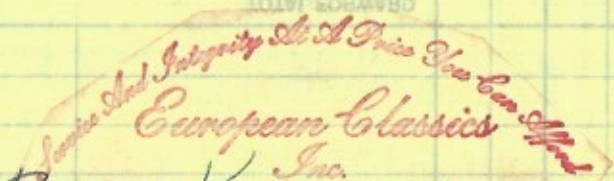 TOTAL FORWARD
Service And Integrity At A Price You Can Afford
European Classics
Inc.